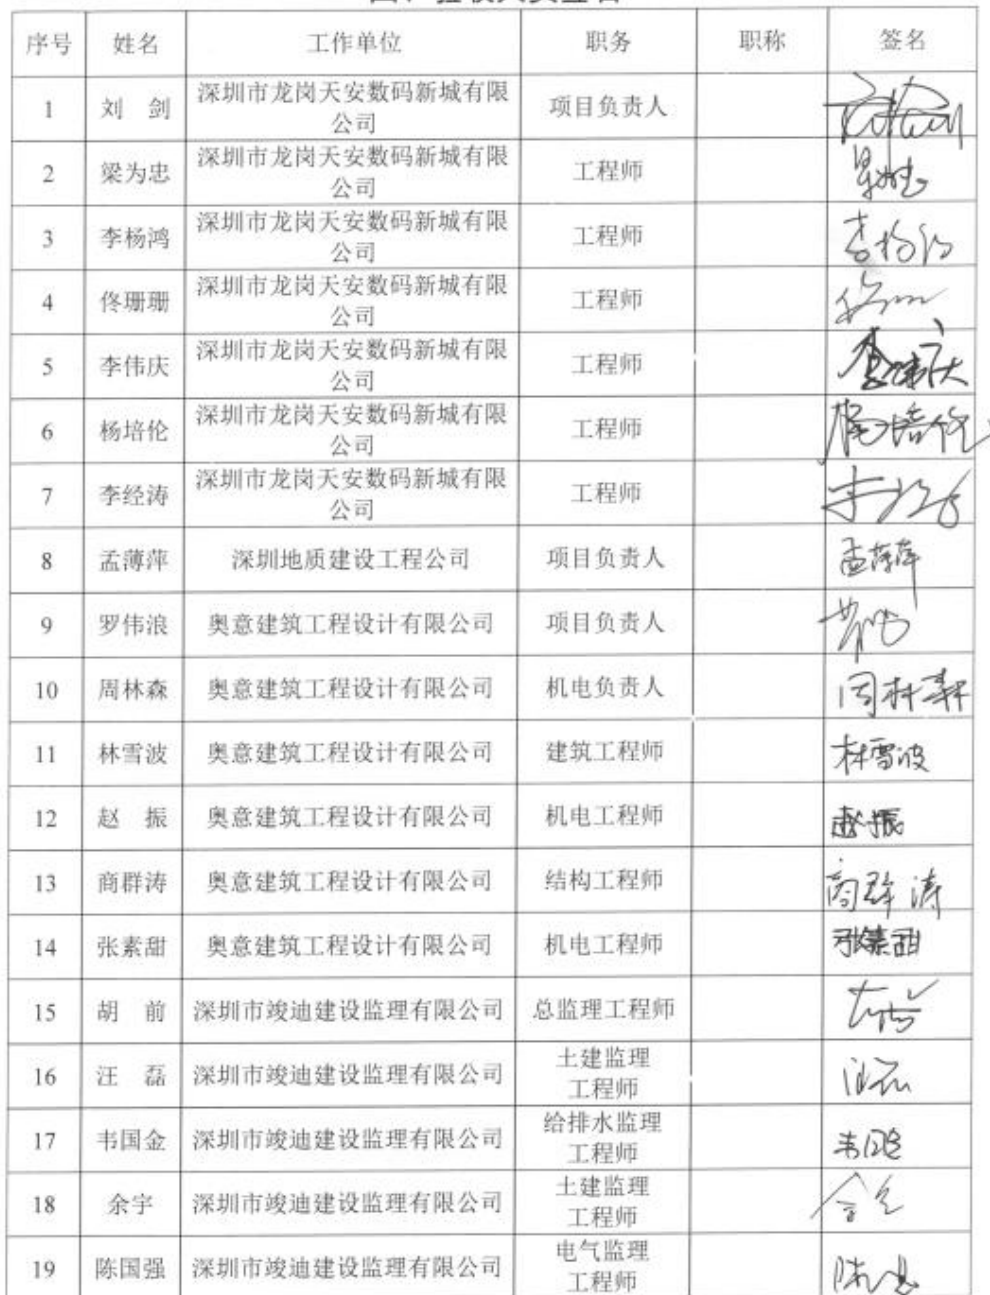 序号 姓名 工作单位 职务 职称 签名
1 刘 剑 深圳市龙岗天安数码新城有限 项目负责人
公司
2 梁为忠 深圳市龙岗天安数码新城有限 工程师
公司
3 李杨鸿 深圳市龙岗天安数码新城有限 工程师
公司
4 佟珊珊 深圳市龙岗天安数码新城有限 工程师
公司
5 李伟庆 深圳市龙岗天安数码新城有限 工程师 李伟庆
公司
6 杨培伦 深圳市龙岗天安数码新城有限 工程师 杨培伦
公司
7 李经涛 深圳市龙岗天安数码新城有限 工程师
公司
8 孟薄萍 深圳地质建设工程公司 项目负责人
9 罗伟浪 奥意建筑工程设计有限公司 项目负责人
10 周林森 奥意建筑工程设计有限公司 机电负责人 周林森
11 林雪波 奥意建筑工程设计有限公司 建筑工程师 林雪波
12 赵 振 奥意建筑工程设计有限公司 机电工程师 赵振
13 商群涛 奥意建筑工程设计有限公司 结构工程师 商群涛
14 张素甜 奥意建筑工程设计有限公司 机电工程师 张素甜
15 胡 前 深圳市竣迪建设监理有限公司 总监理工程师
16 汪 磊 深圳市竣迪建设监理有限公司 土建监理
工程师
17 韦国金 深圳市竣迪建设监理有限公司 给排水监理
工程师
18 余宇 深圳市竣迪建设监理有限公司 土建监理
工程师
19 陈国强 深圳市竣迪建设监理有限公司 电气监理
工程师